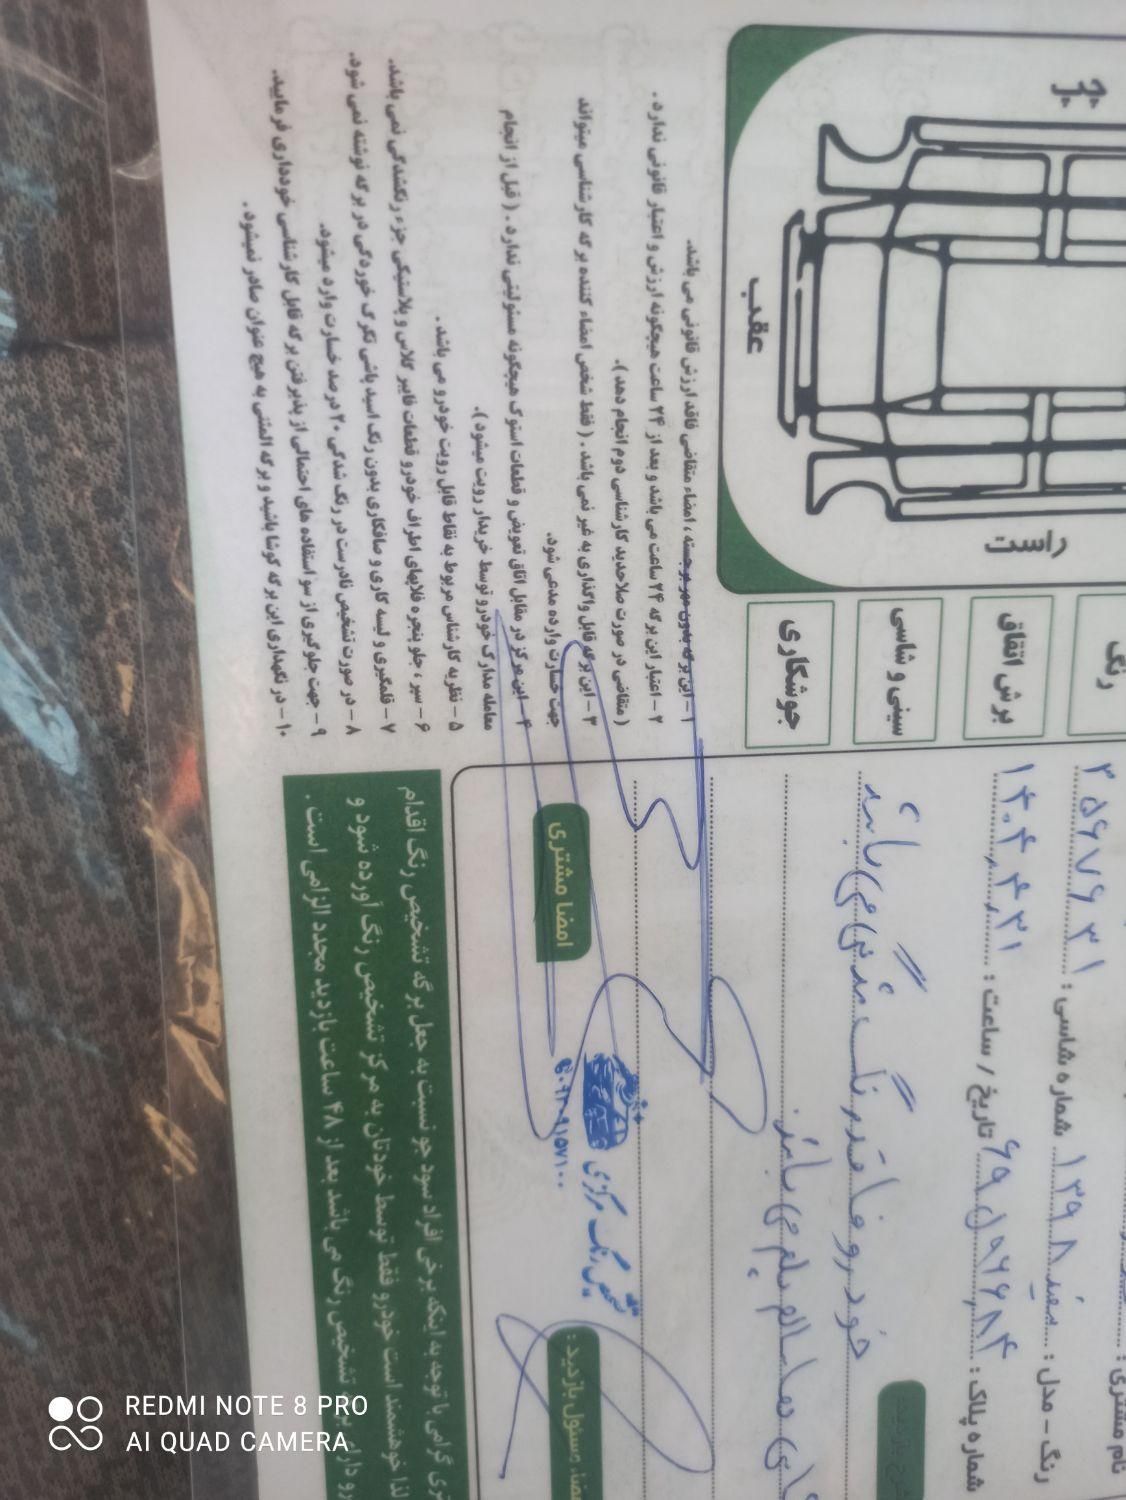 نام مشتری :
رنگ - مدل : سفید ۱۳۹۸ شماره شاسی : ۳۵۶۷۶۳۱
شماره پلاک : ۹۶۶ل۶۹ تاریخ / ساعت : ۱۴۰۴,۴,۳۱
خودرو فاقد رنگ شدگی می باشد
های سالم پلمپ می باشد
امضا مشتری
تشخیص رنگ مرکزی
رنگ
برش اتاق
سینی و شاسی
جوشکاری
راست
عقب
۱ - این برگه بدون مهر برجسته ، امضاء متقاضی فاقد ارزش قانونی می باشد.
۲ - اعتبار این برگه ۲۴ ساعت می باشد و بعد از ۲۴ ساعت هیچگونه ارزش و اعتبار قانونی ندارد .
( متقاضی در صورت صلاحدید کارشناسی دوم انجام دهد ).
۳ - این برگه قابل واگذاری به غیر نمی باشد . ( فقط شخص امضاء کننده برگه کارشناسی میتواند
جهت خسارت وارده مدعی شود.
۴ - این مرکز در مقابل اتاق تعویض و قطعات استوک هیچگونه مسئولیتی ندارد . ( قبل از انجام
معامله مدارک خودرو توسط خریدار رویت میشود ).
۵ - نظریه کارشناس مربوط به نقاط قابل رویت خودرو می باشد .
۶ - سپر ، جلو پنجره فلاپهای اطراف خودرو قطعات فایبر گلاس و پلاستیکی جزء رنگشدگی نمی باشد.
۷ - قلمگیری و لیسه کاری و صافکاری بدون رنگ اسید پاشی تگرگ خوردگی در برگه نوشته نمی شود.
۸ - در صورت تشخیص نادرست در رنگ شدگی ۲۰ درصد خسارت وارد میشود.
۹ - جهت جلوگیری از سو استفاده های احتمالی از پذیرفتن برگه فابل کارشناسی خودداری فرمایید.
۱۰ - در نگهداری این برگه کوشا باشید و برگه المثنی به هیچ عنوان صادر نمیشود.
مشتری گرامی با توجه به اینکه برخی افراد سود جو نسبت به جعل برگه تشخیص رنگ اقدام
لذا خواهشمند است خودرو فقط توسط خودتان به مرکز تشخیص رنگ آورده شود و
تشخیص رنگ می باشد بعد از ۴۸ ساعت بازدید مجدد الزامی است .
REDMI NOTE 8 PRO
AI QUAD CAMERA